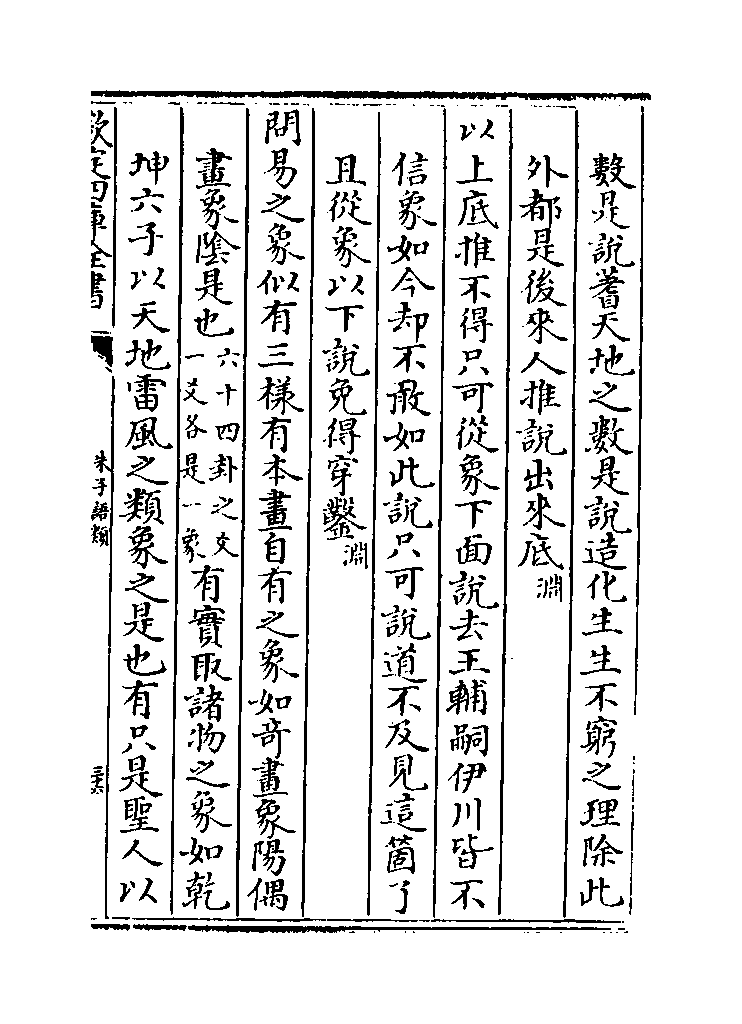 數是說蓍天地之數是說造化生生不窮之理除此
外都是後來人推說出來底淵
以上底推不得只可從象下面說去王輔嗣伊川皆不
信象如今却不敢如此說只可說道不及見這箇了
且從象以下說免得穿鑿淵
問易之象似有三樣有本畫自有之象如竒畫象陽偶
畫象陰是也六十四卦之爻一爻各是一象有實取諸物之象如乾
坤六子以天地雷風之類象之是也有只是聖人以
欽定四庫全書
朱子語類
三六